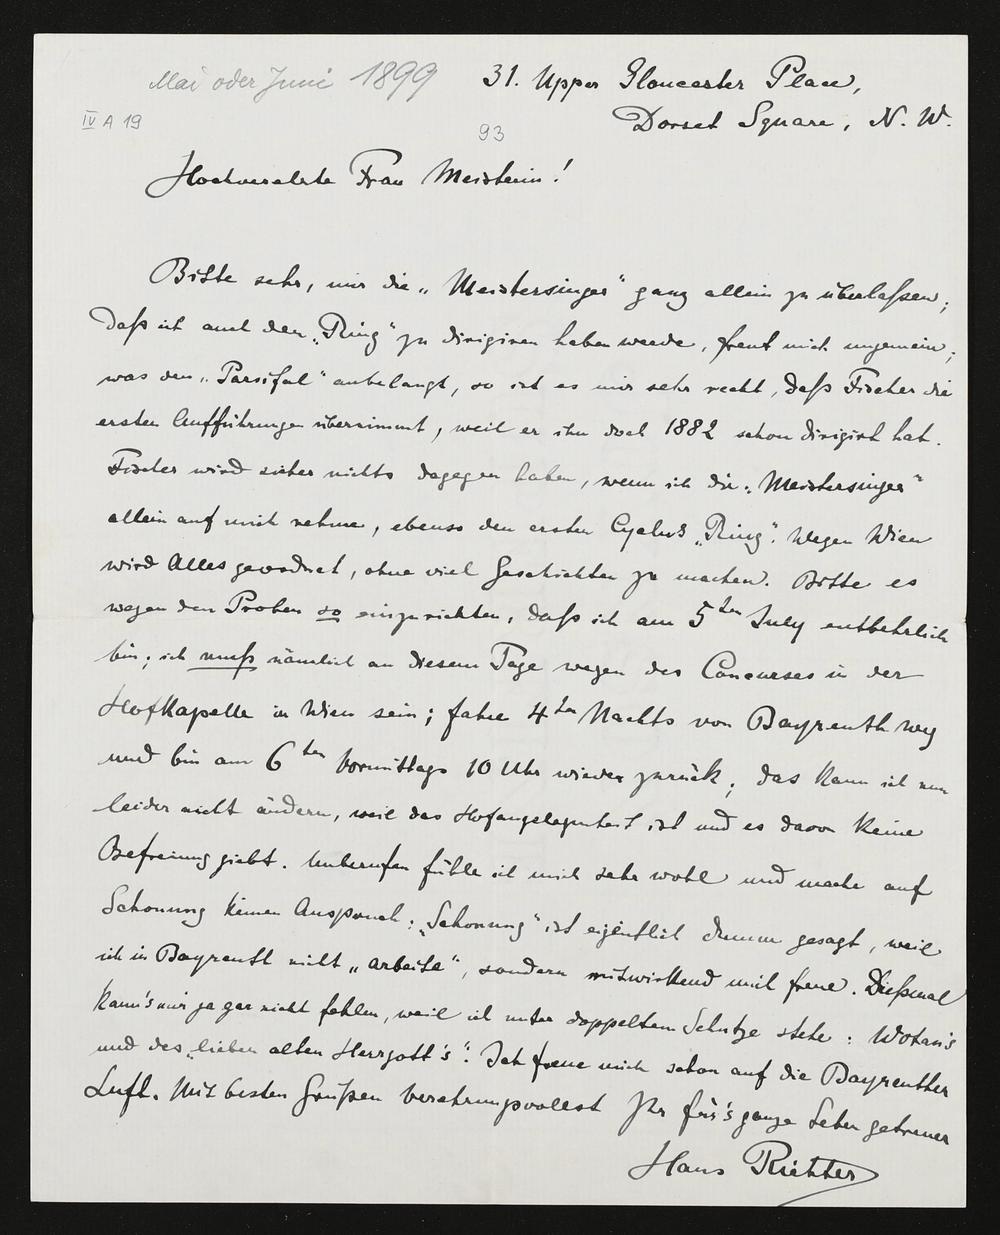 Mai oder Juni 1899
31. Upper Gloucester Place,
Dorset Square, N. W.
IV A 19
93
Hochverehrte Frau Meisterin!
Bitte sehr, mir die „Meistersinger" ganz allein zu überlaßen;
daß ich auch den „Ring" zu dirigiren haben werde, freut mich ungemein;
was den „Parsifal" anbelangt, so ist es mir sehr recht, daß Fischer die
ersten Aufführungen übernimmt, weil er ihn doch 1882 schon dirigirt hat.
Fischer wird sicher nichts dagegen haben, wenn ich die „Meistersinger"
allein auf mich nehme, ebenso den ersten Cyclus „Ring". Wegen Wien
wird Alles geordnet, ohne viel Geschichten zu machen. Bitte es
wegen den Proben so einzurichten, daß ich am 5ten July entbehrlich
bin; ich muß nämlich an diesem Tage wegen des Concurses in der
Hofkapelle in Wien sein; fahre 4ten Nachts von Bayreuth weg
und bin am 6ten Vormittags 10 Uhr wieder zurück; das kann ich nun
leider nicht ändern, weil das Hofangelegenheit ist und es davon keine
Befreiung giebt. Unberufen fühle ich mich sehr wohl und mache auf
Schonung keinen Anspruch; „Schonung" ist eigentlich dumm gesagt, weil
ich in Bayreuth nicht „arbeite", sondern mitwirkend mich freue. Dießmal
kann's mir ja gar nicht fehlen, weil ich unter doppeltem Schutze stehe: Wotan's
und des „lieben alten Herrgott's". Ich freue mich schon auf die Bayreuther
Luft. Mit besten Grüßen verehrungsvollest Ihr für's ganze Leben getreuer
Hans Richter